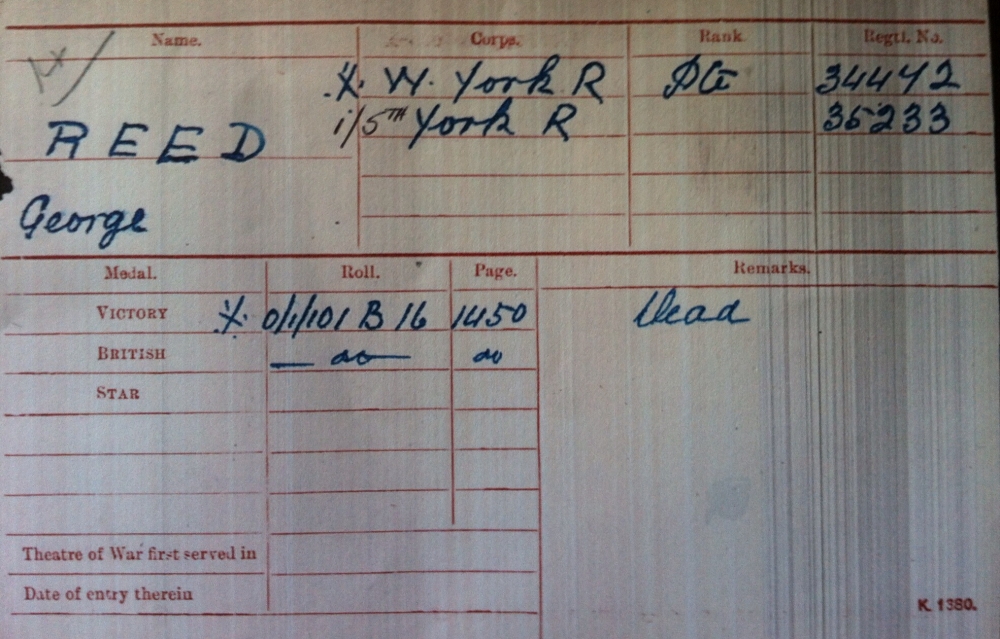 Name. Corps. Rank. Regtl. No.
X. W. York R Pte 34442
1/5TH York R 35233
REED
George
Medal. Roll. Page. Remarks.
VICTORY X. O/1/101 B 16 1450 Dead
BRITISH — do — do
STAR
Theatre of War first served in
Date of entry therein
K. 1380.